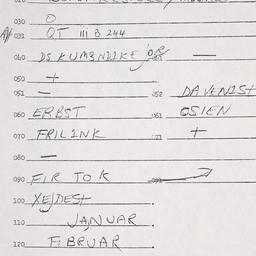 030 O
031 QT III B 244
040 DS KUMBNDIKE JOR —
050 +
051 — 052 DAVENIST
060 ERBST 061 OSIEN
070 FRILINK 071 +
080 —
090 FIR TOK
100 XEJDEST
110 JANUAR
120 FEBRUAR